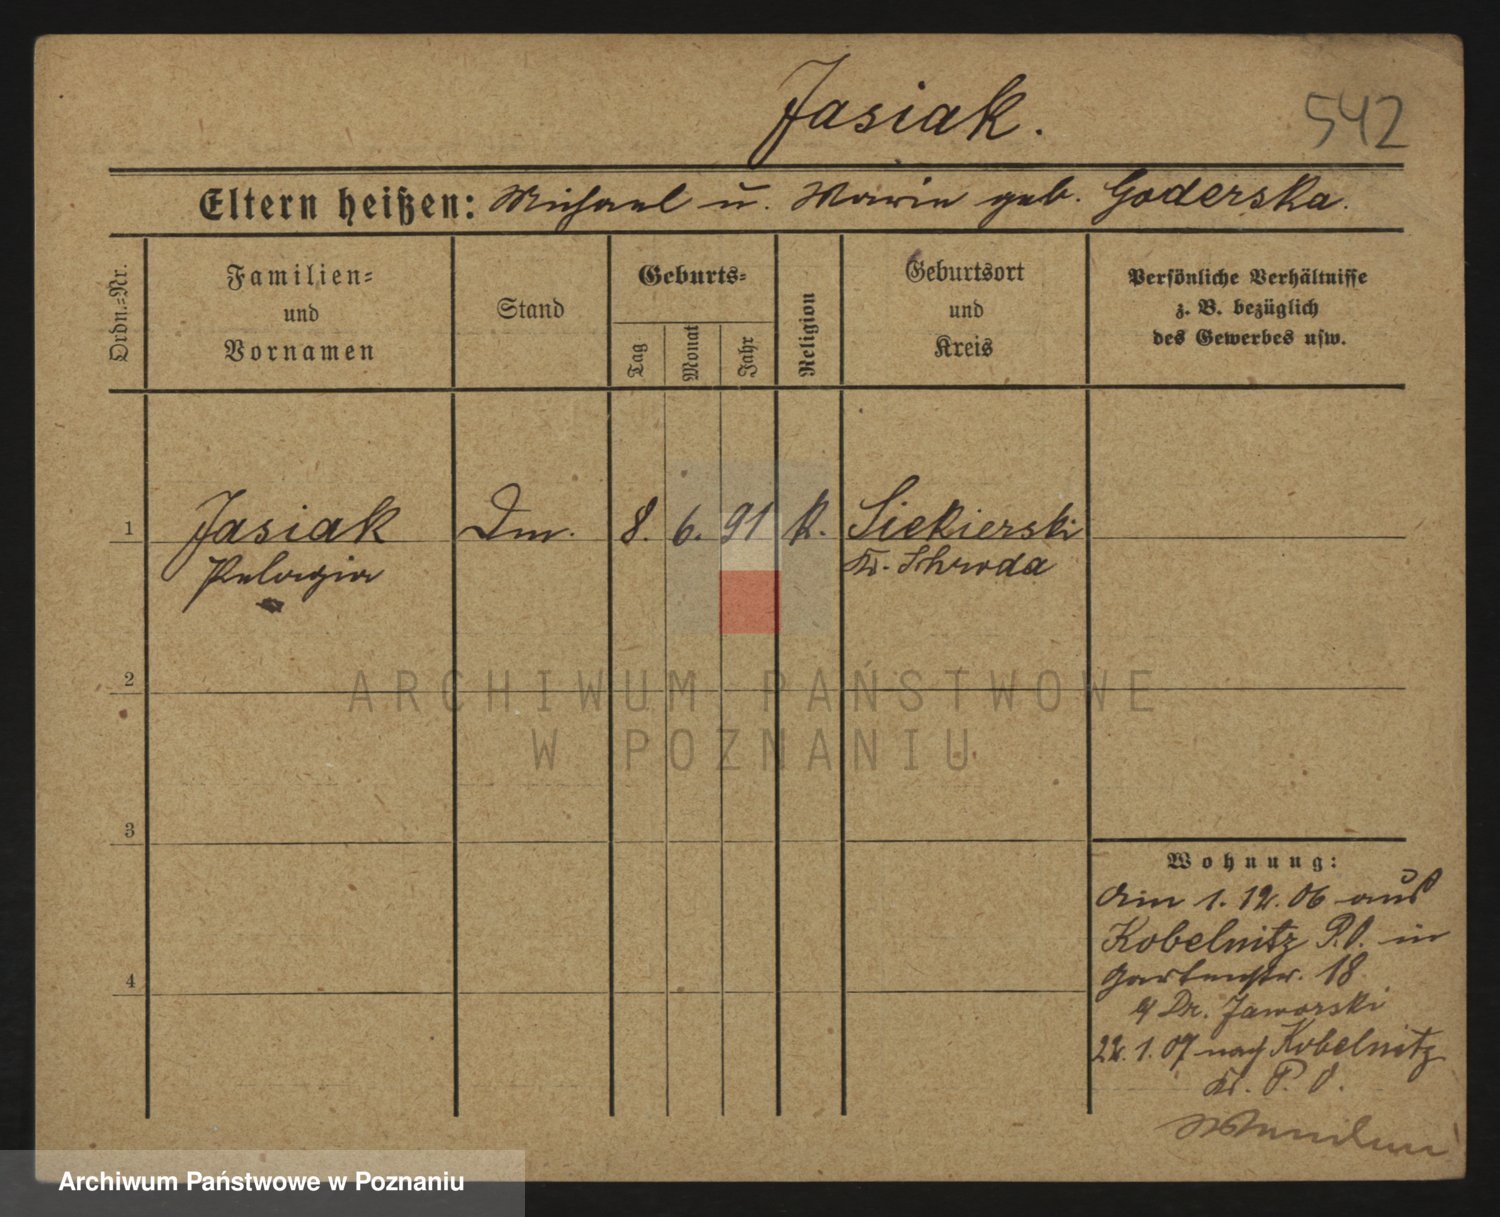 Jasiak.
542
Eltern heißen: Michael u. Maria geb. Goderska.
Ordn.=Nr.
Familien=
und
Vornamen
Stand
Geburts=
Tag
Monat
Jahr
Religion
Geburtsort
und
Kreis
Persönliche Verhältnisse
z. B. bezüglich
des Gewerbes usw.
1 Jasiak Dm. 8. 6. 91 k. Siekierski
Pelagia Kr. Schroda
ARCHIWUM PAŃSTWOWE
W POZNANIU
2
3
4
Wohnung:
Am 1. 12. 06 aus
Kobelnitz P.O. in
Gartenstr. 18
Dr. Jaworski
22. 1. 07 nach Kobelnitz
Kr. P. O.
Archiwum Państwowe w Poznaniu